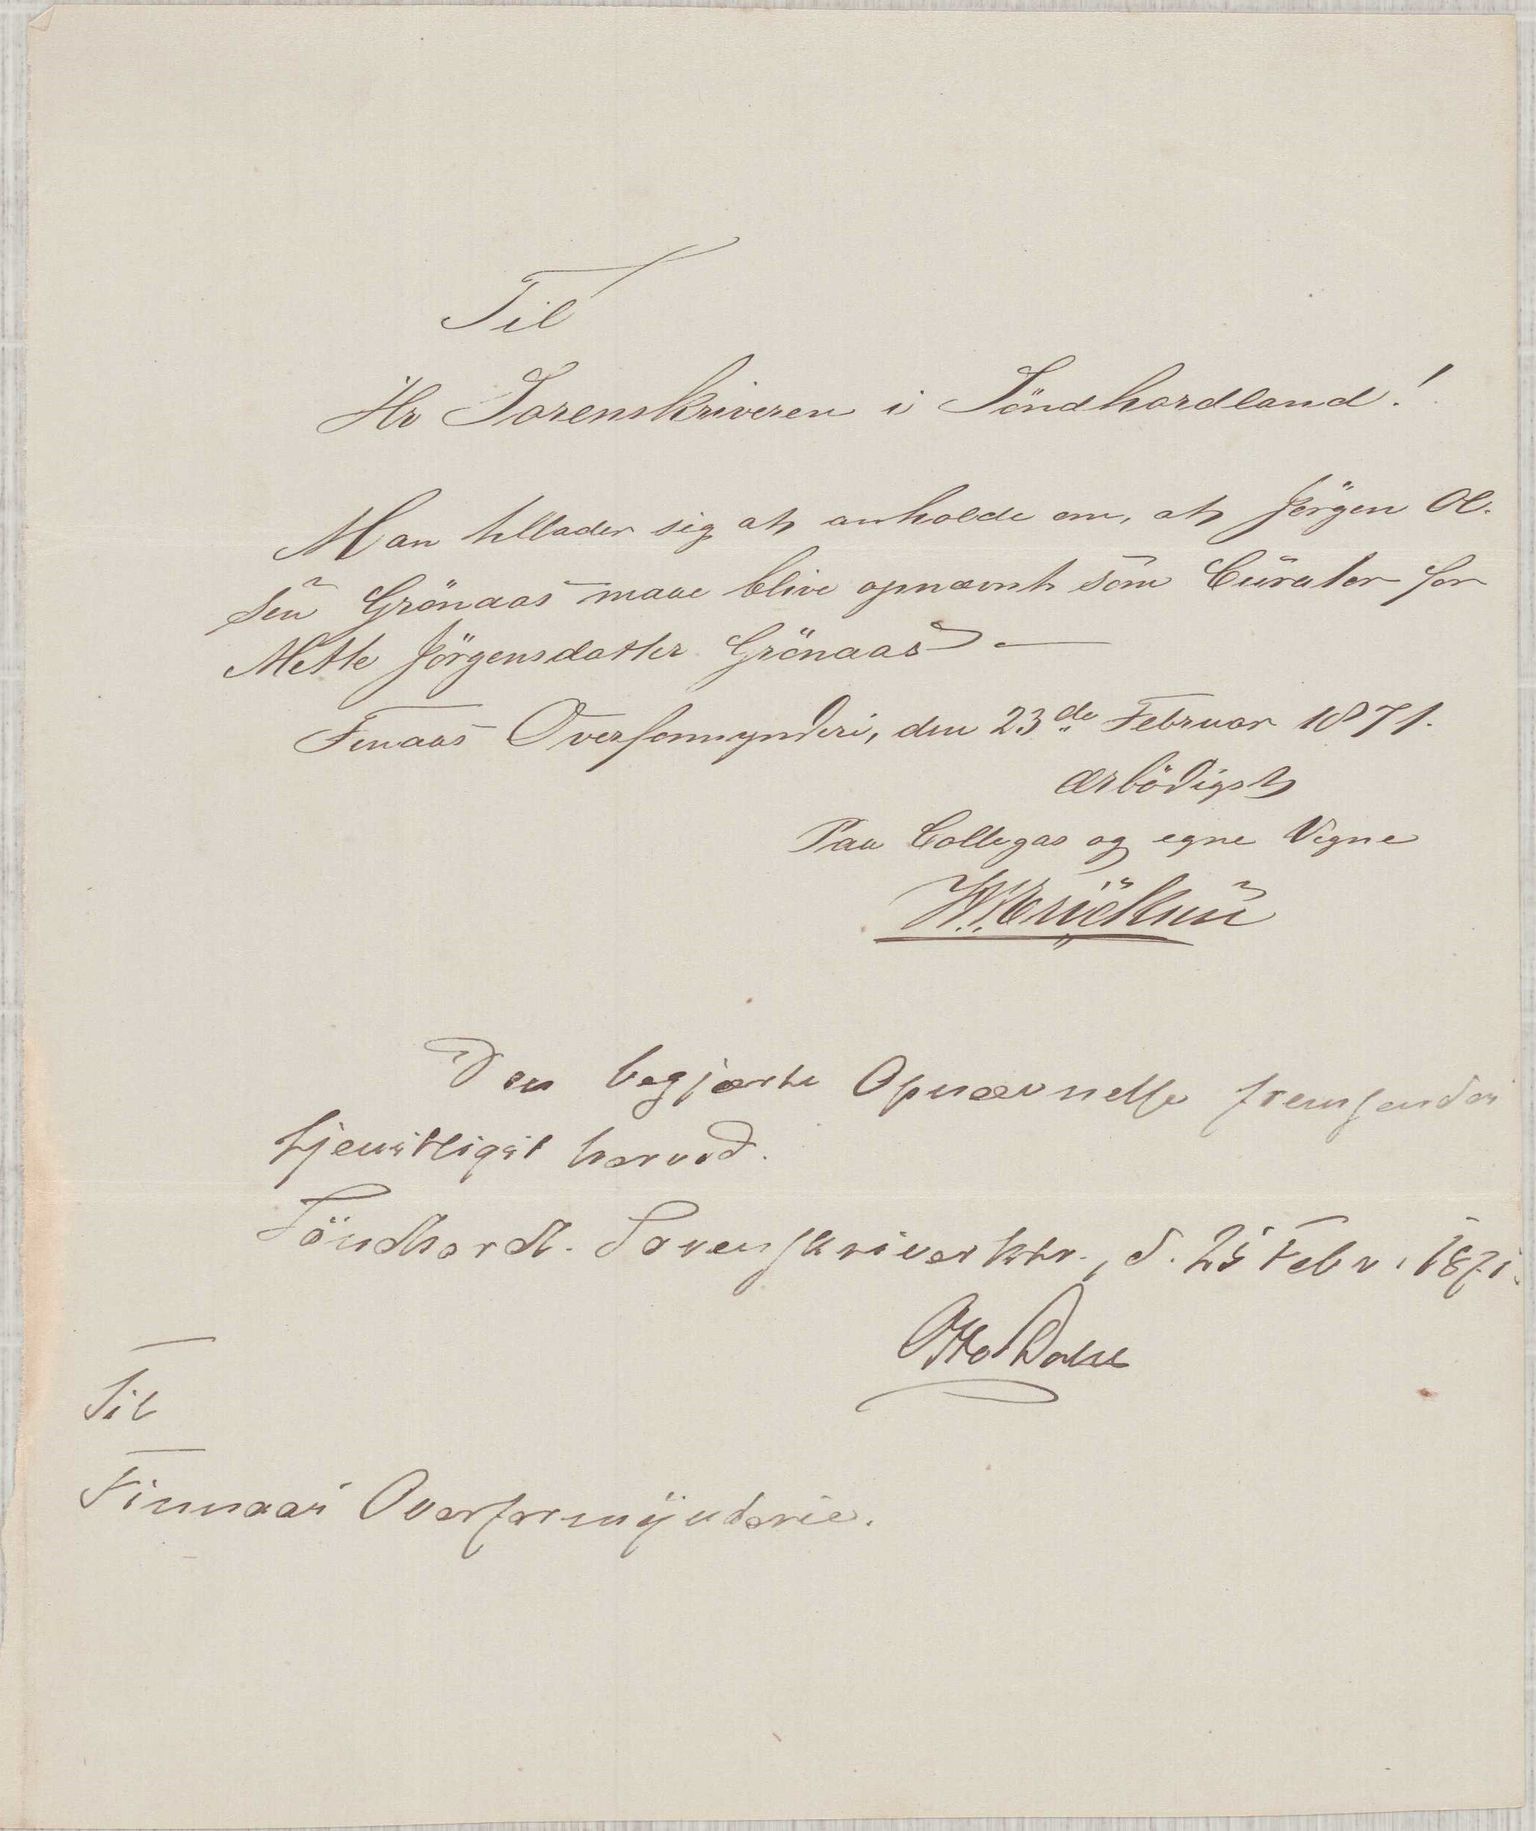 Til
Hr Sorenskriveren i Söndhordland!
Man tillader sig at anholde om, at Jörgen Ol-
sen Grönaas maae blive opnævnt som Curator for
Mette Jörgensdatter Grönaas. —
Finaas Overformynderi, den 23de Februar 1871.
ærbödigst
Paa Collegas og egne Vegne
Den begjærte Opnævnelse fremsendes
tjenstligst herved.
Söndhordl. Sorenskriverktr., d. 25 Febr. 1871.
Otto Dahl
Til
Finnaas Overformynderie.